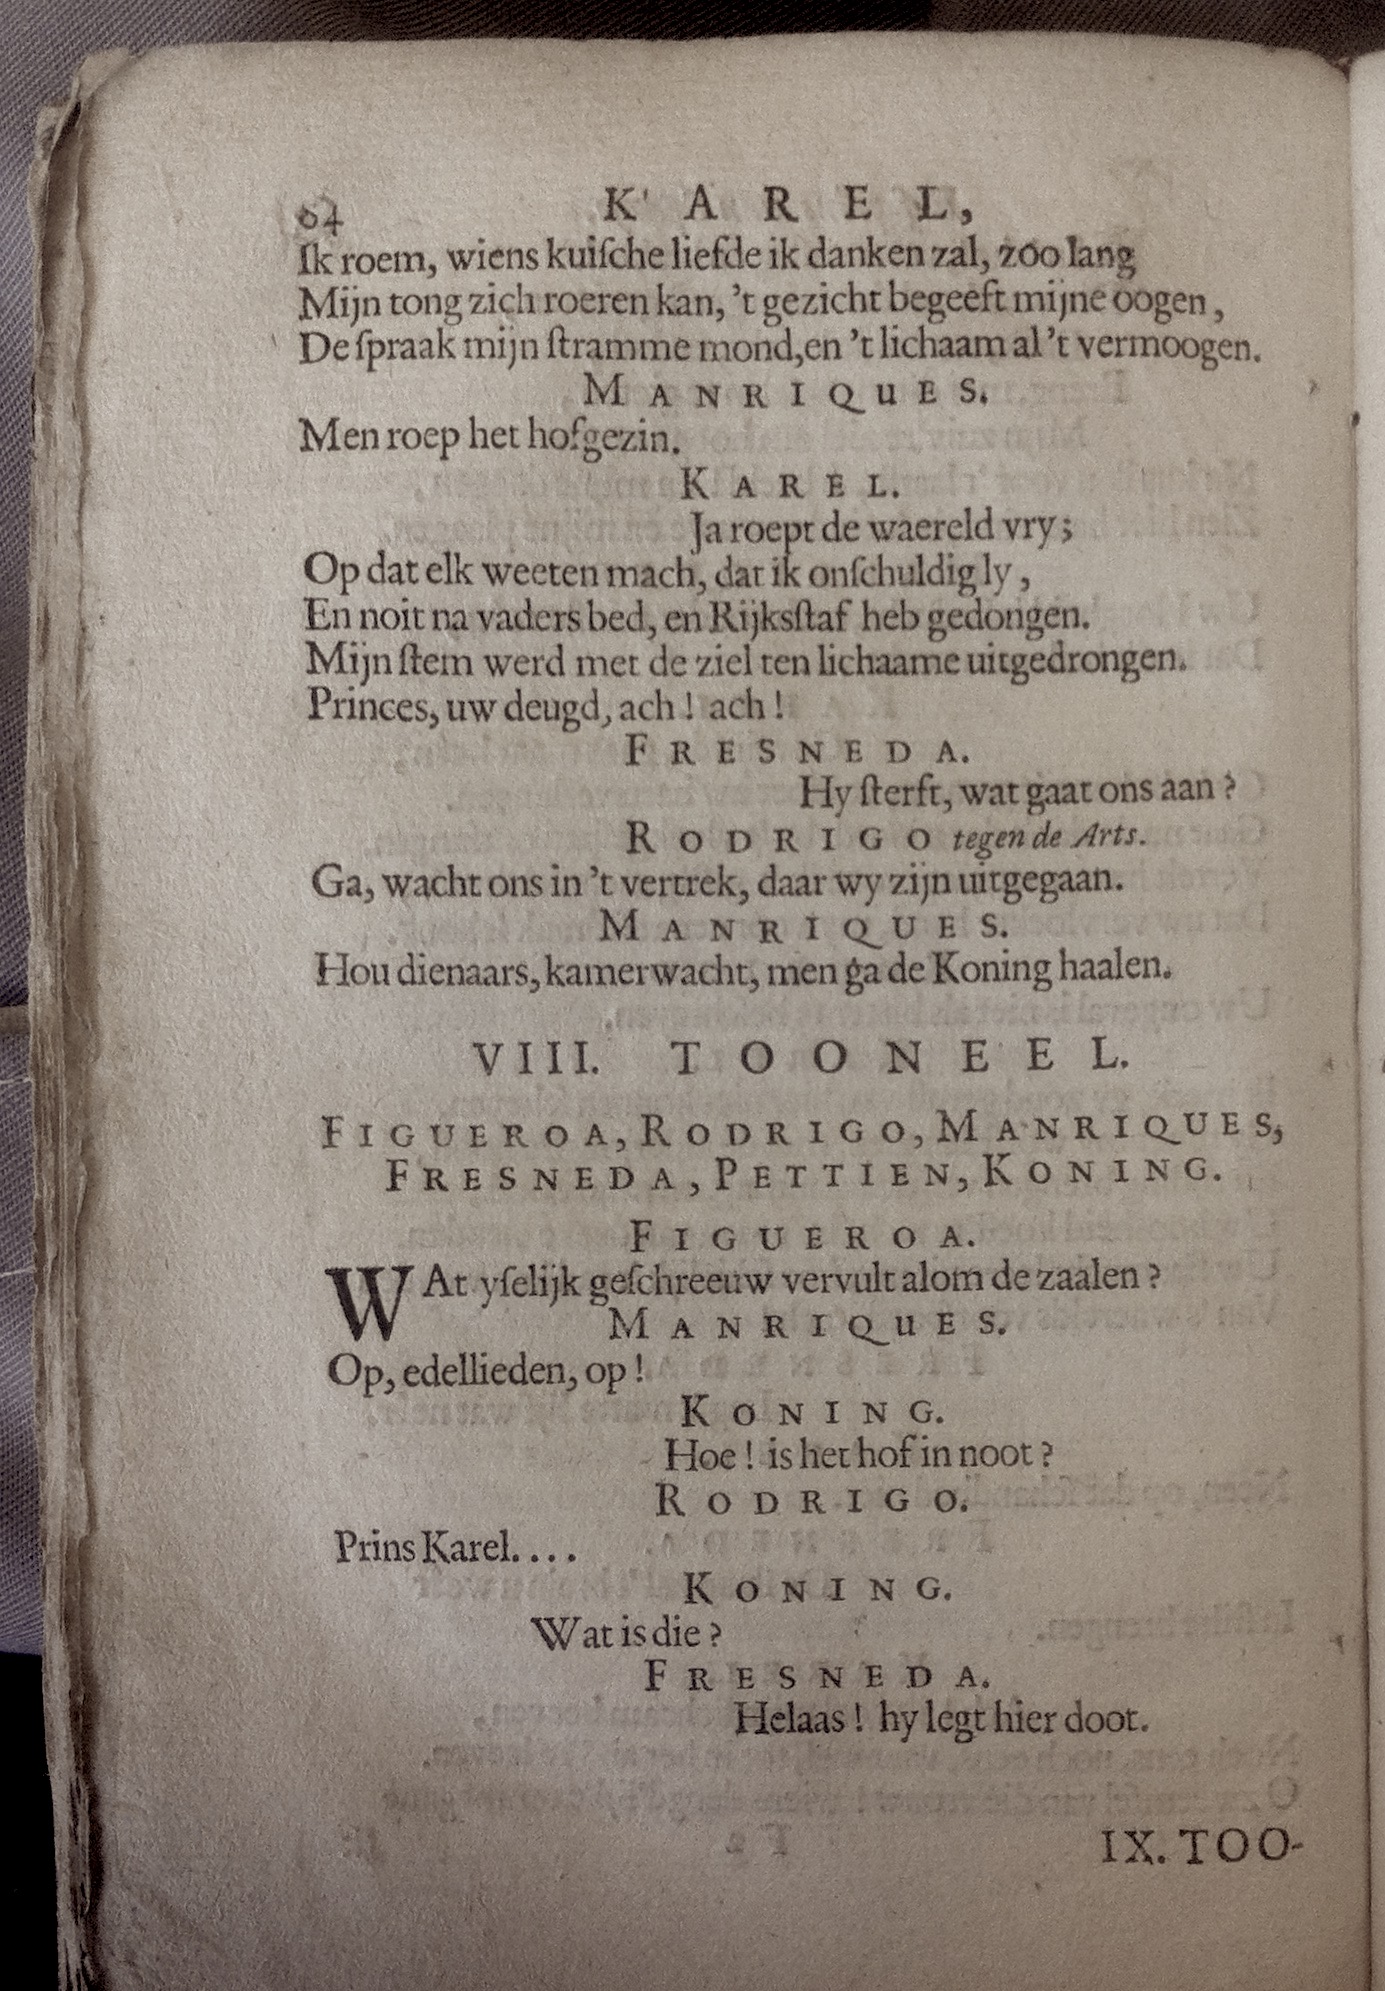 64 KAREL,
Ik roem, wiens kuiſche liefde ik danken zal, zoo lang
Mijn tong zich roeren kan, 't gezicht begeeft mijne oogen,
De ſpraak mijn ſtramme mond,en 't lichaam al 't vermoogen.
MANRIQUES.
Men roep het hofgezin.
KAREL.
Ja roept de waereld vry;
Op dat elk weeten mach, dat ik onſchuldig ly,
En noit na vaders bed, en Rijksſtaf heb gedongen.
Mijn ſtem werd met de ziel ten lichaame uitgedrongen.
Princes, uw deugd, ach! ach!
FRESNEDA.
Hy ſterft, wat gaat ons aan?
RODRIGO tegen de Arts.
Ga, wacht ons in 't vertrek, daar wy zijn uitgegaan.
MANRIQUES.
Hou dienaars, kamerwacht, men ga de Koning haalen.
VIII. TOONEEL.
FIGUEROA, RODRIGO, MANRIQUES,
FRESNEDA, PETTIEN, KONING.
FIGUEROA.
WAt yſelijk geſchreeuw vervult alom de zaalen?
MANRIQUES.
Op, edellieden, op!
KONING.
Hoe! is het hof in noot?
RODRIGO.
Prins Karel....
KONING.
Wat is die?
FRESNEDA.
Helaas! hy legt hier doot.
IX. TOO-